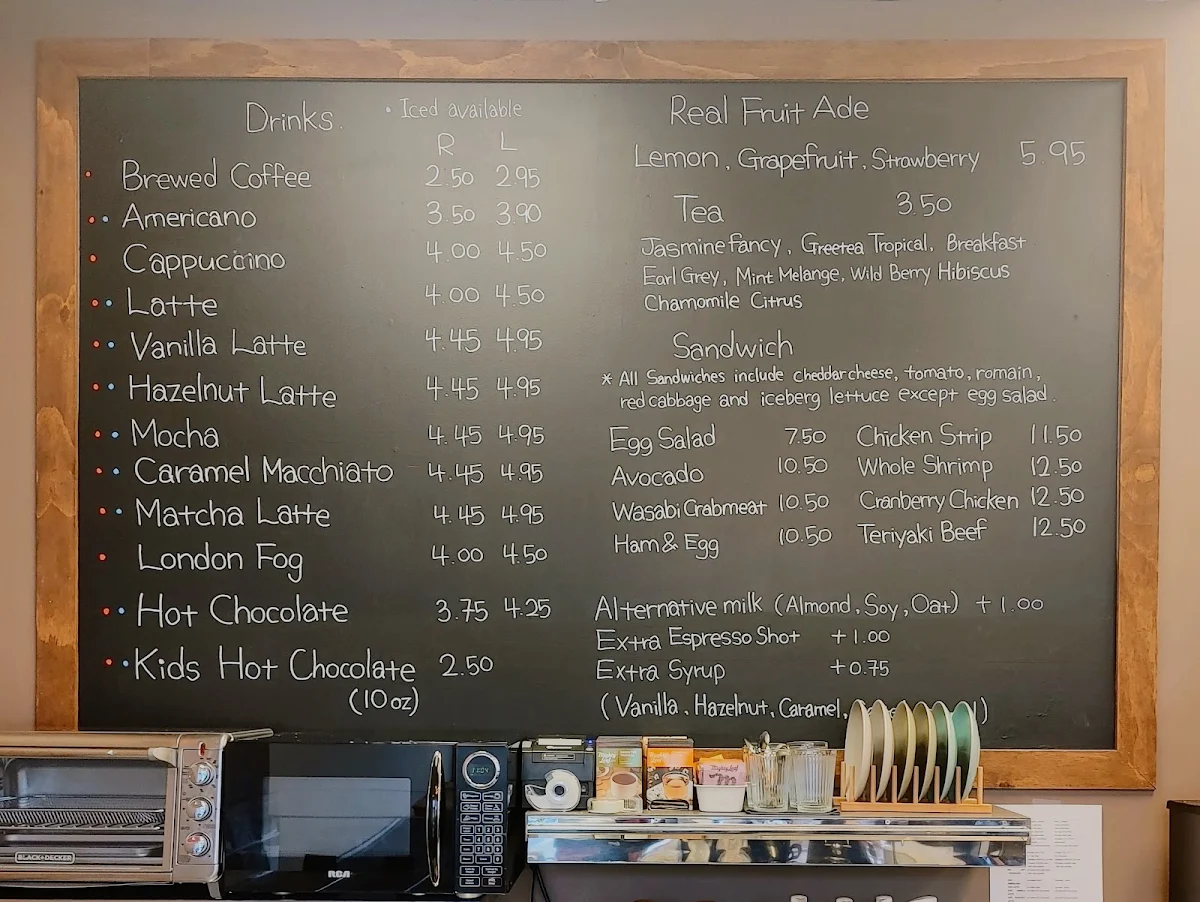 Drinks. • Iced available
R L
• Brewed Coffee 2.50 2.95
•• Americano 3.50 3.90
• Cappuccino 4.00 4.50
•• Latte 4.00 4.50
•• Vanilla Latte 4.45 4.95
•• Hazelnut Latte 4.45 4.95
•• Mocha 4.45 4.95
•• Caramel Macchiato 4.45 4.95
•• Matcha Latte 4.45 4.95
• London Fog 4.00 4.50
•• Hot Chocolate 3.75 4.25
•• Kids Hot Chocolate 2.50
(10oz)
Real Fruit Ade
Lemon, Grapefruit, Strawberry 5.95
Tea 3.50
Jasmine fancy, Greetea Tropical, Breakfast
Earl Grey, Mint Melange, Wild Berry Hibiscus
Chamomile Citrus
Sandwich
* All Sandwiches include cheddar cheese, tomato, romain,
red cabbage and iceberg lettuce except egg salad.
Egg Salad 7.50 Chicken Strip 11.50
Avocado 10.50 Whole Shrimp 12.50
Wasabi Crabmeat 10.50 Cranberry Chicken 12.50
Ham & Egg 10.50 Teriyaki Beef 12.50
Alternative milk (Almond, Soy, Oat) +1.00
Extra Espresso Shot +1.00
Extra Syrup +0.75
(Vanilla, Hazelnut, Caramel, )
BLACK+DECKER
RCA